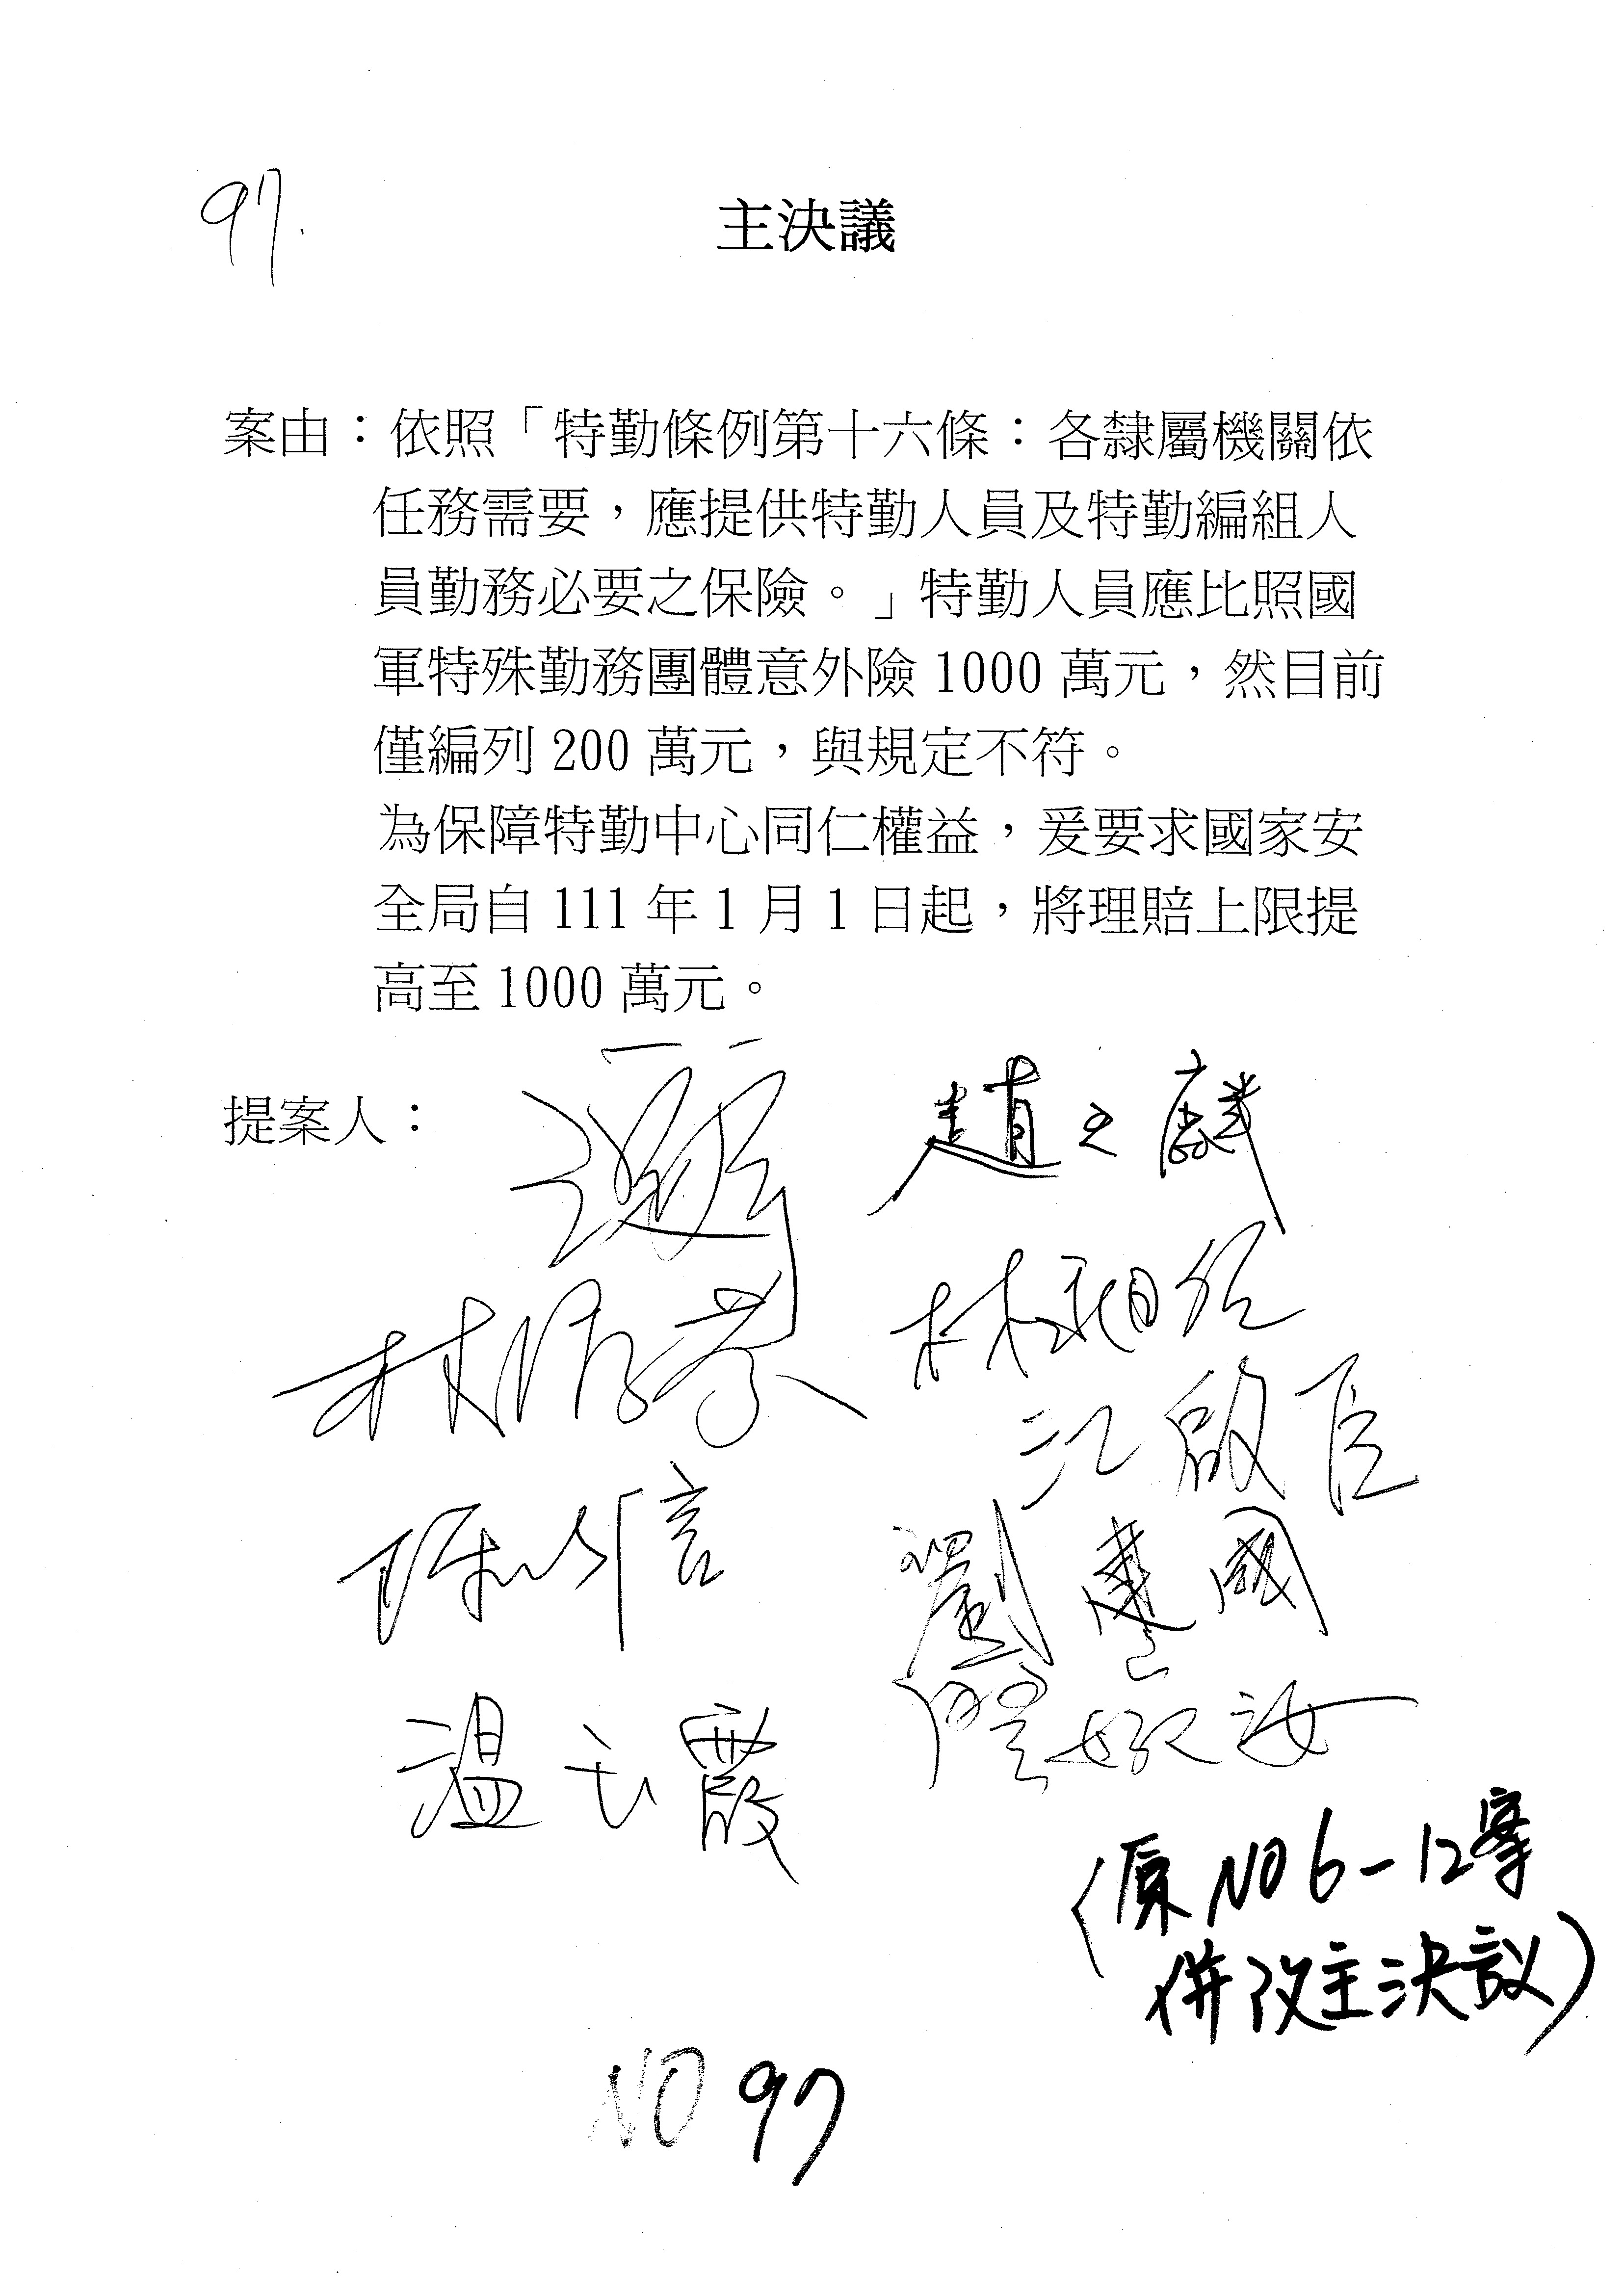 97.
主決議
案由：依照「特勤條例第十六條：各隸屬機關依
任務需要，應提供特勤人員及特勤編組人
員勤務必要之保險。」特勤人員應比照國
軍特殊勤務團體意外險 1000 萬元，然目前
僅編列 200 萬元，與規定不符。
為保障特勤中心同仁權益，爰要求國家安
全局自 111 年 1 月 1 日起，將理賠上限提
高至 1000 萬元。
提案人：
趙天麟
江啟臣
陳以信
劉建國
溫玉霞
(原NO 6-12案
併改主決议)
NO 97